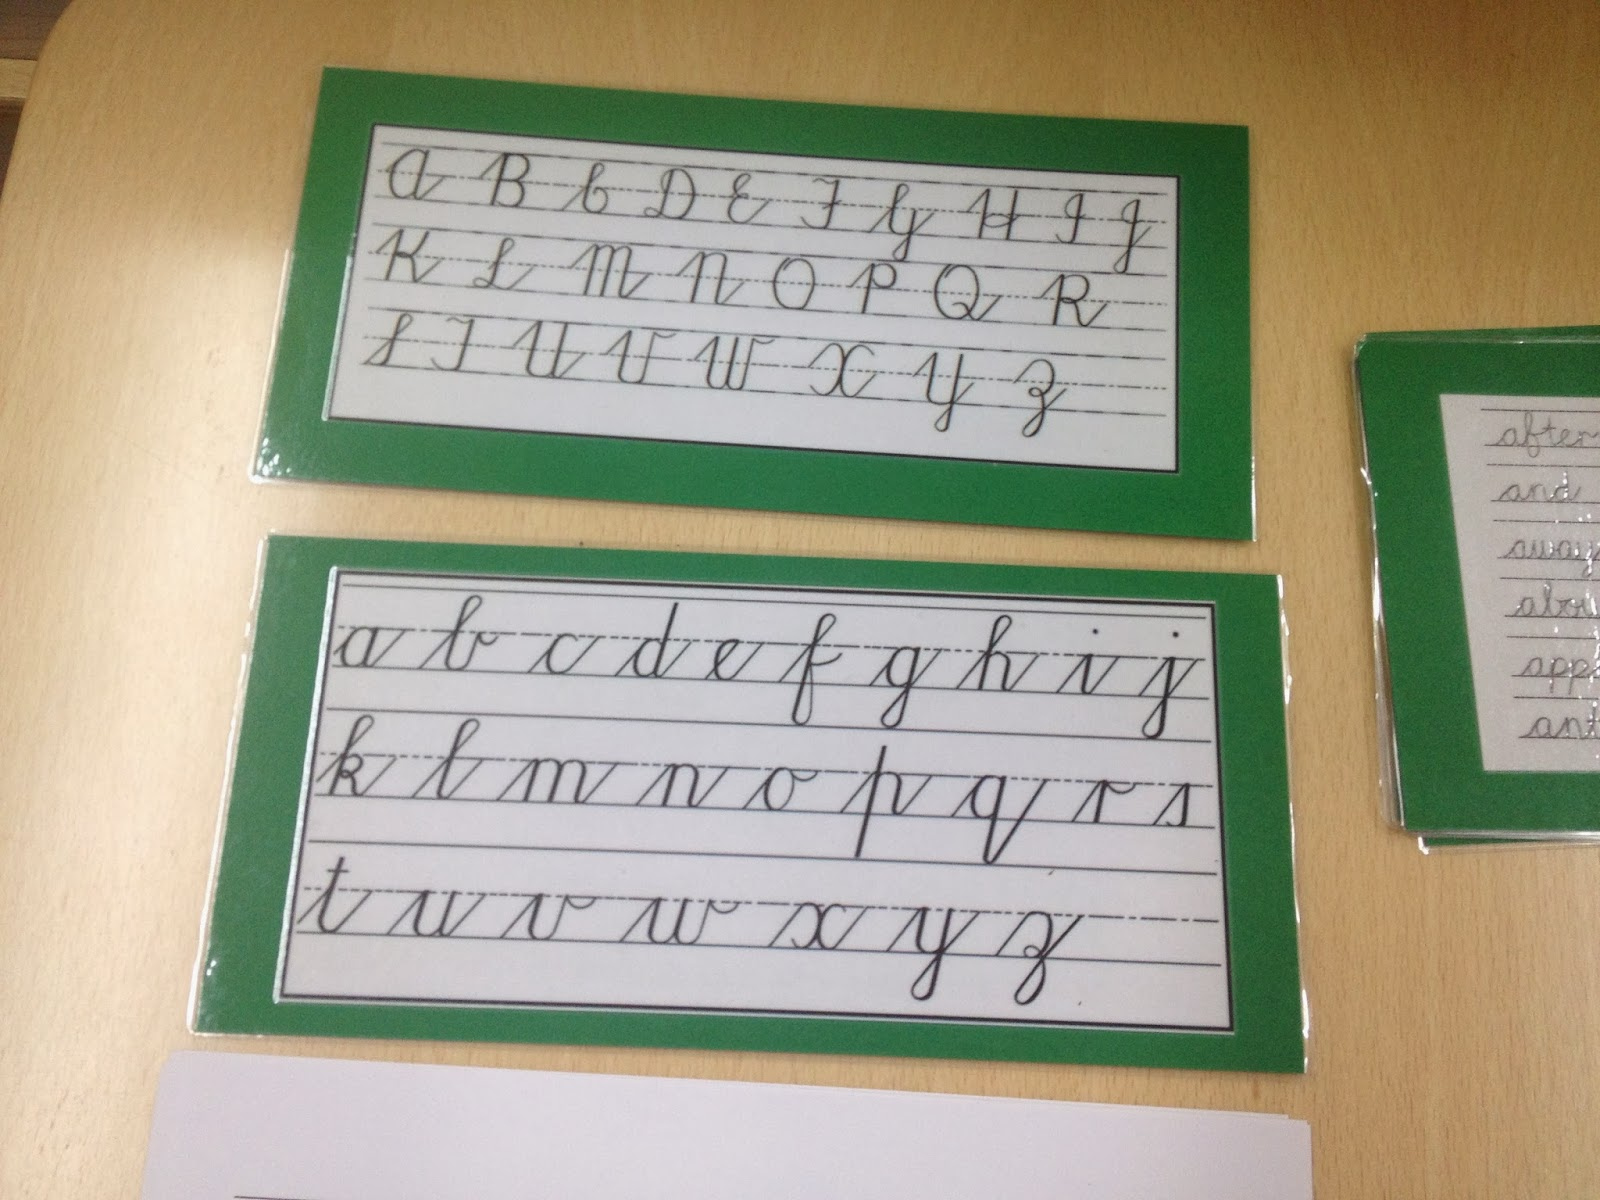 A B C D E F G H I J
K L M N O P Q R
S T U V W X Y Z
a b c d e f g h i j
k l m n o p q r s
t u v w x y z
after
and
away
abou
app
ant